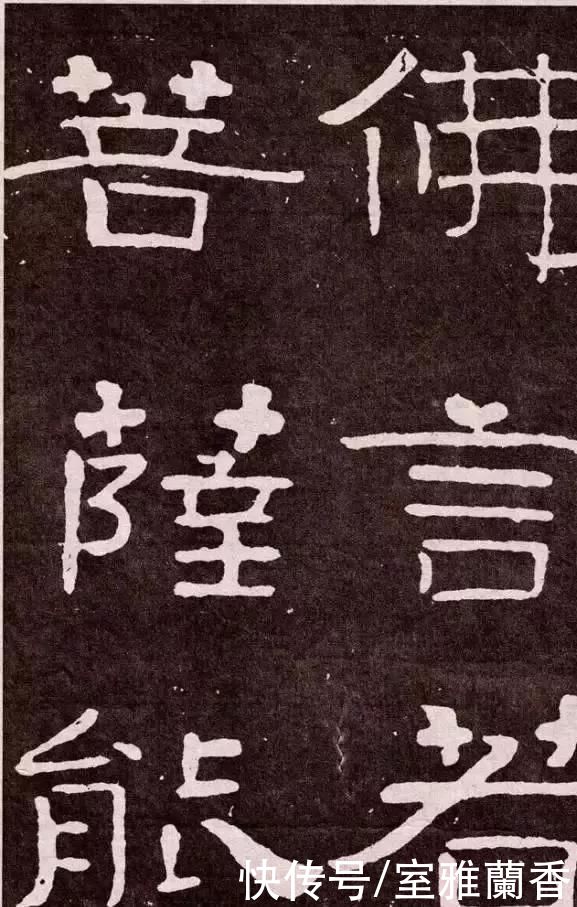 佛言若
菩薩能
快传号/室雅蘭香